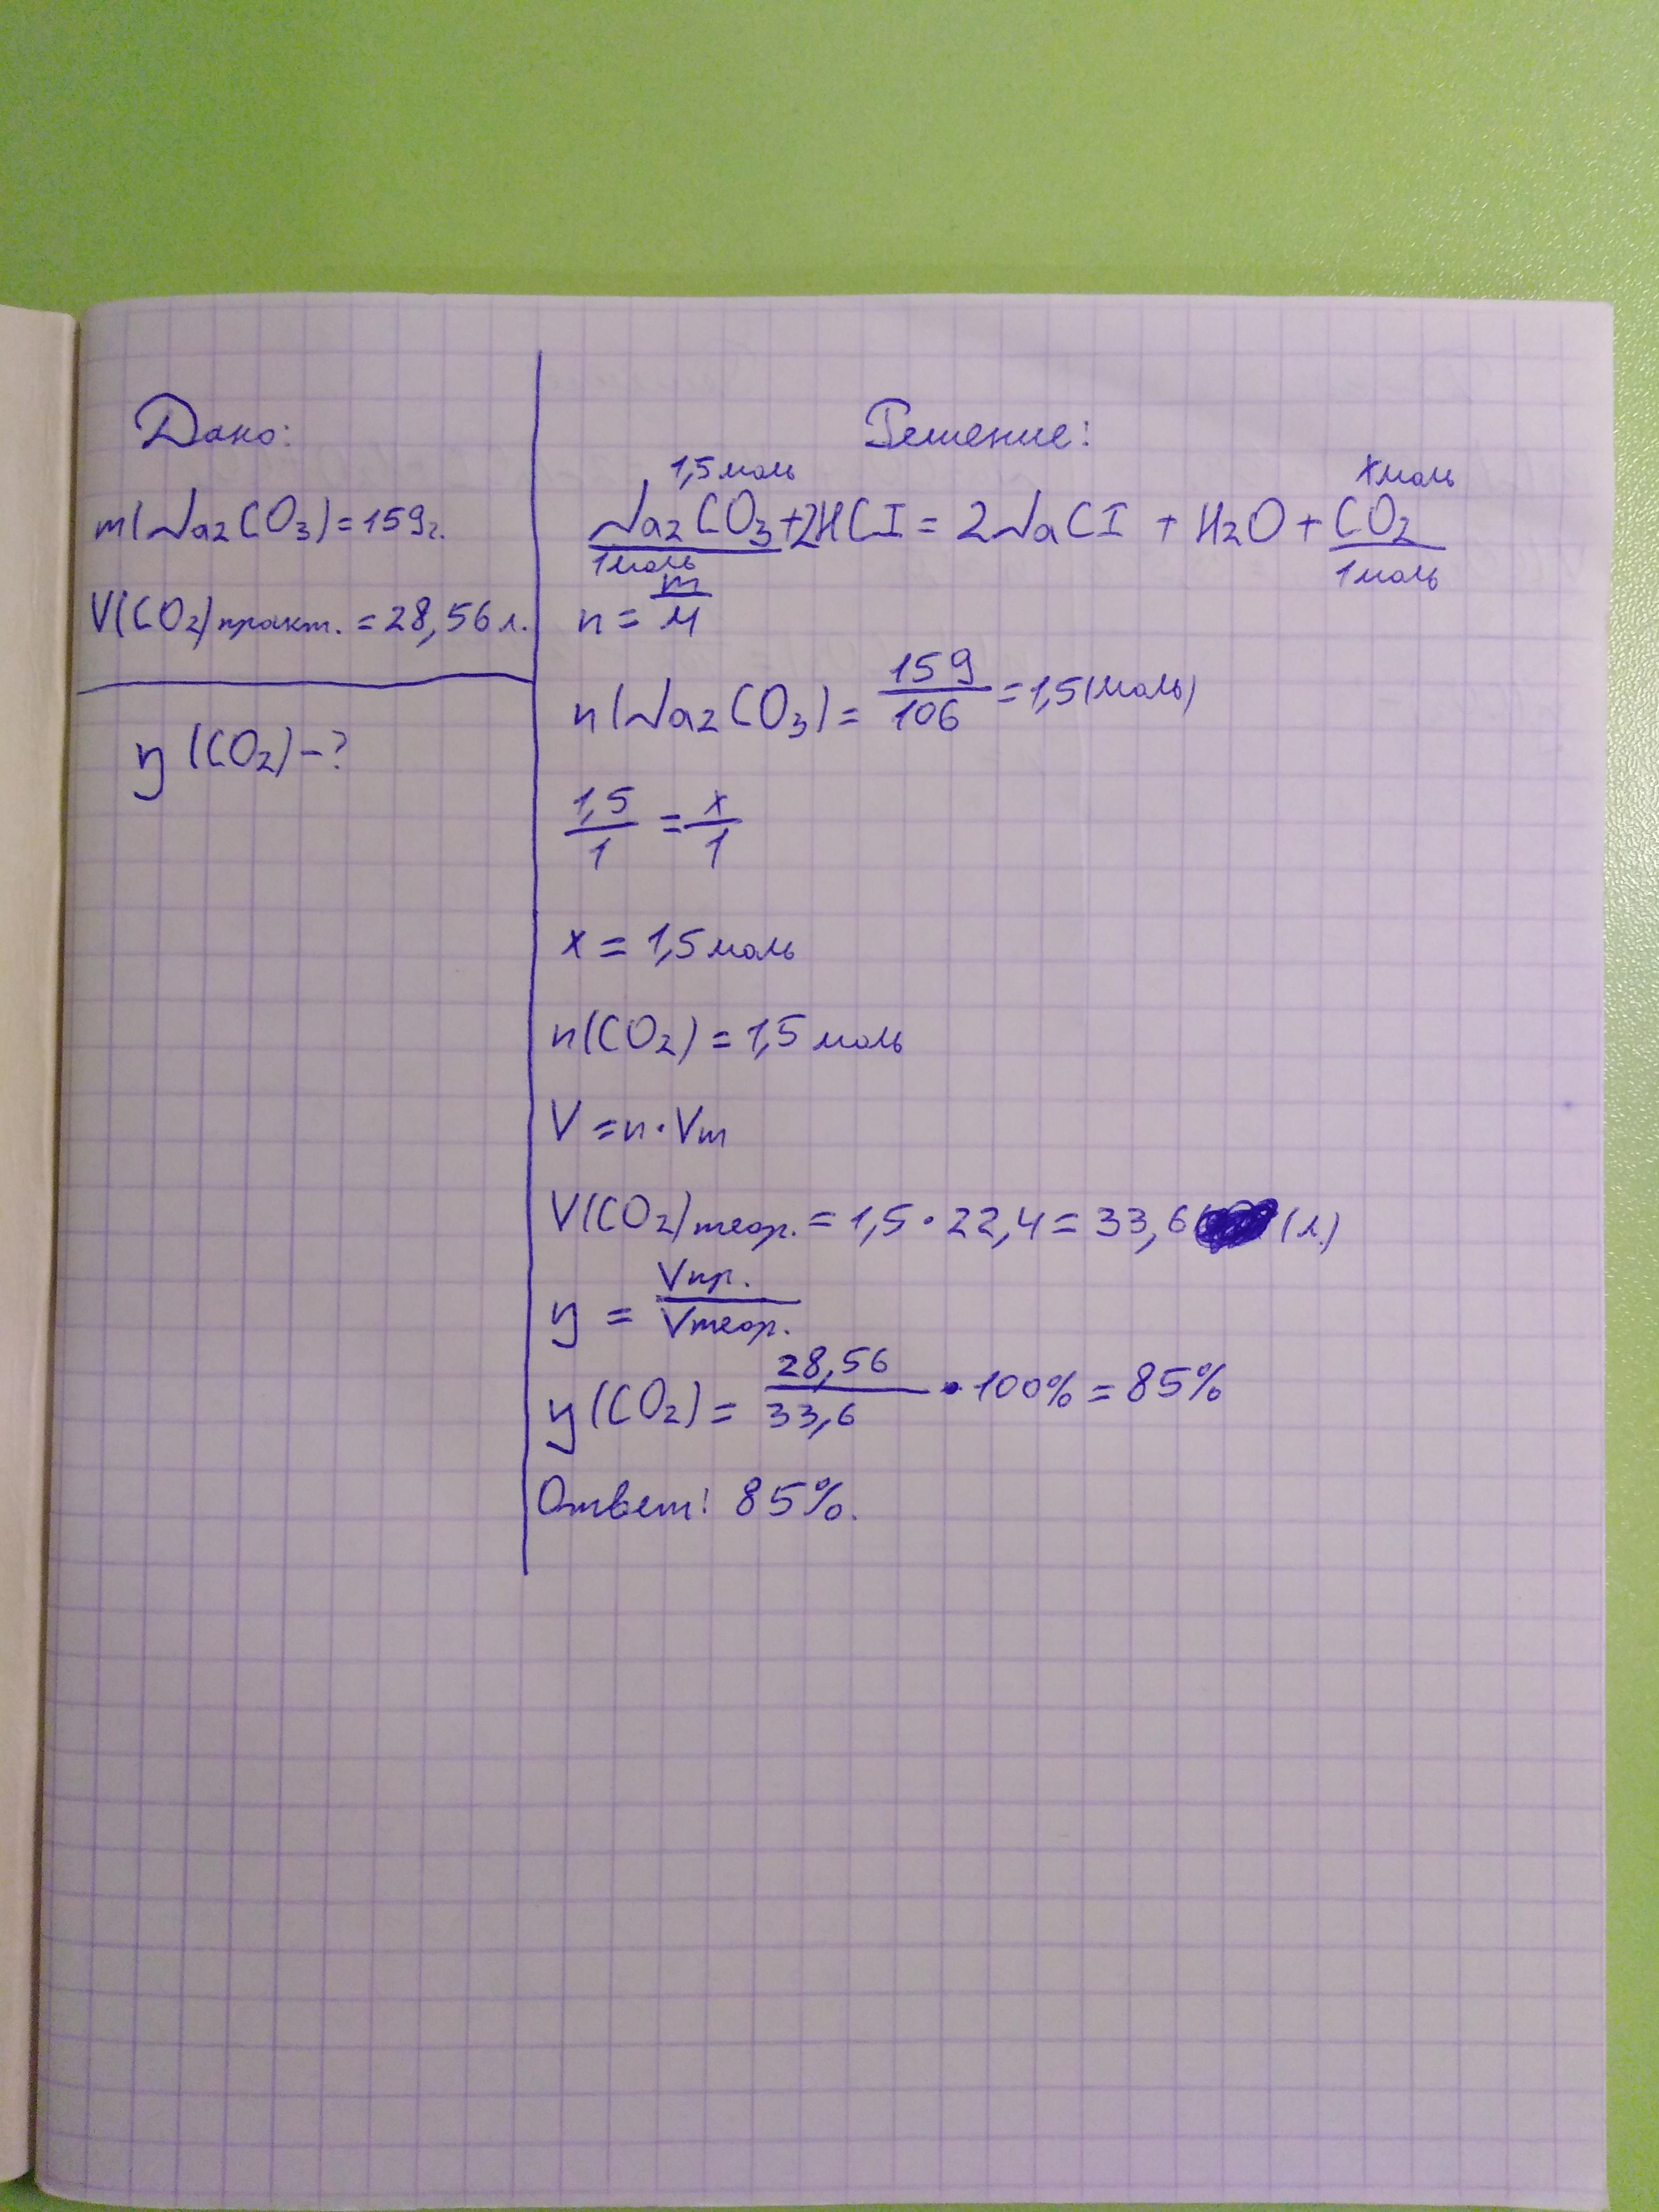 Дано:
m(Na2CO3)=159г.
V(CO2)практ.=28,56 л.
η(CO2)-?
Решение:
1,5 моль x моль
Na2CO3+2HCl=2NaCl+H2O+CO2
1 моль 1 моль
n=m/M
n(Na2CO3)=159/106=1,5(моль)
1,5/1=x/1
x=1,5 моль
n(CO2)=1,5 моль
V=n·Vm
V(CO2)теор.=1,5·22,4=33,6(л.)
η=Vпр./Vтеор.
η(CO2)=28,56/33,6·100%=85%
Ответ: 85%.